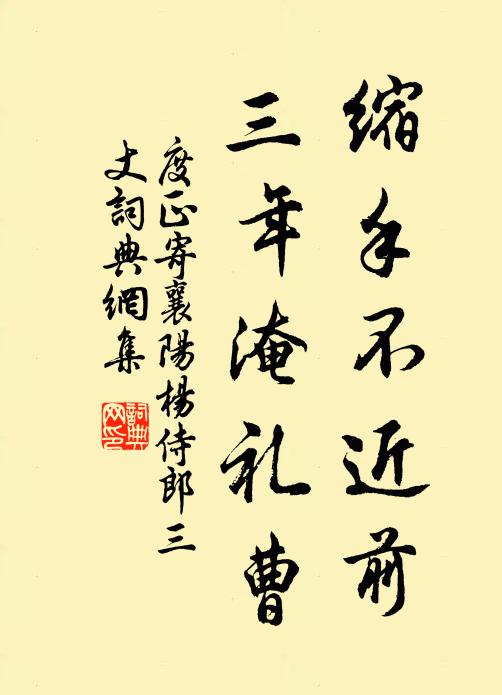 缩手不近前
三年淹礼曹
度正寄襄陽楊侍郎三
丈詞典網集
詞典网印